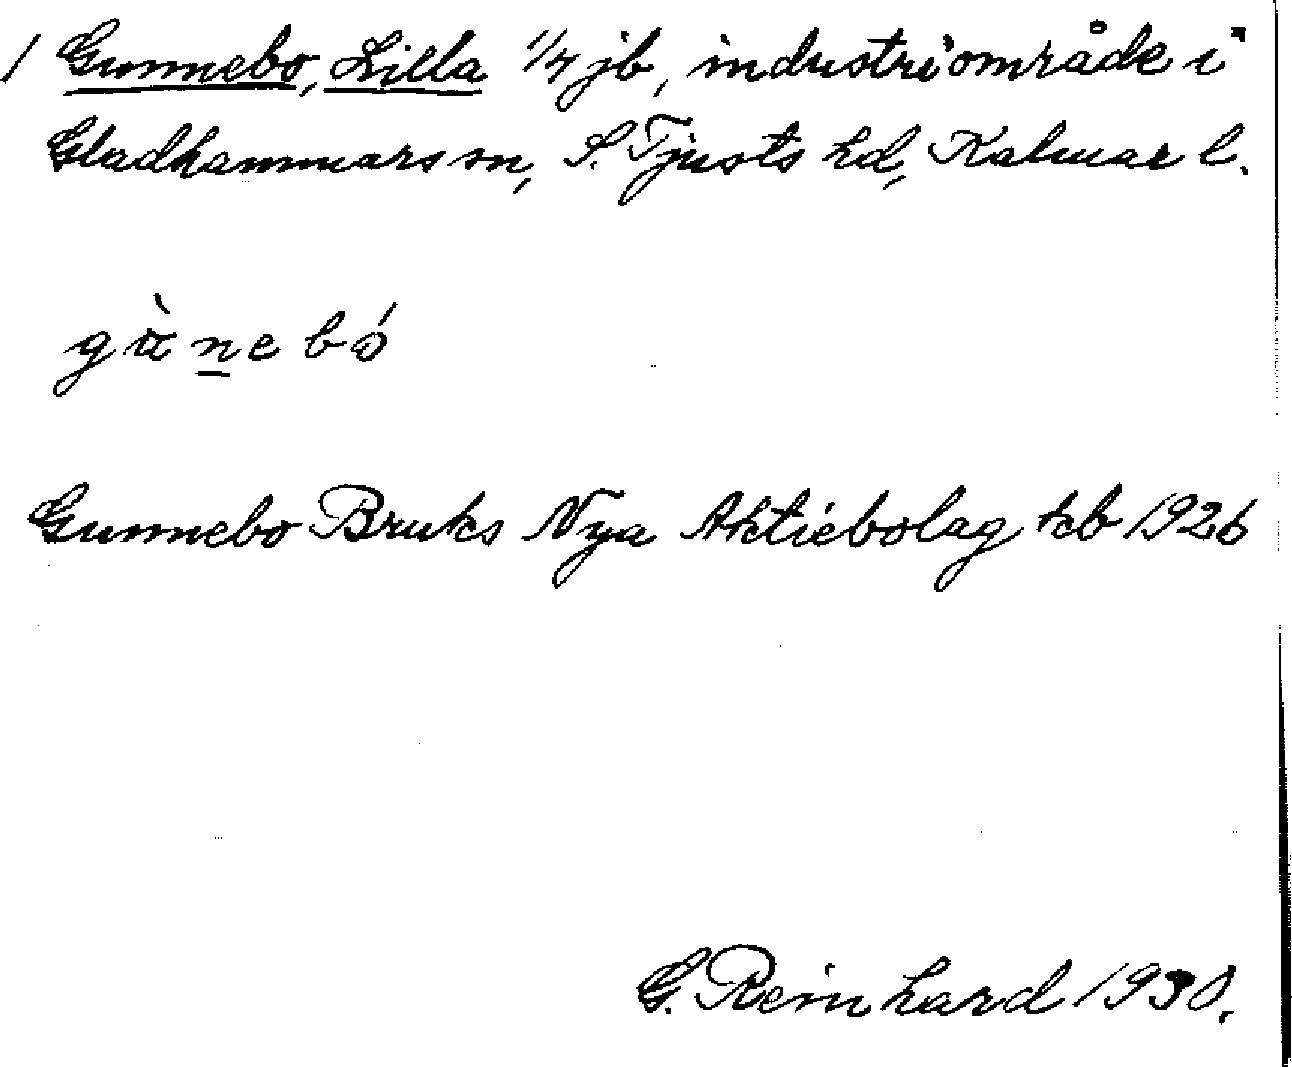 1 Gunnebo, Lilla 1/4 jb, industriområde i
Gladhammars sn, S. Tjusts hd, Kalmar l.
Gunnebo Bruks Nya Aktiebolag tcb 1926
G. Reinhard 1930.